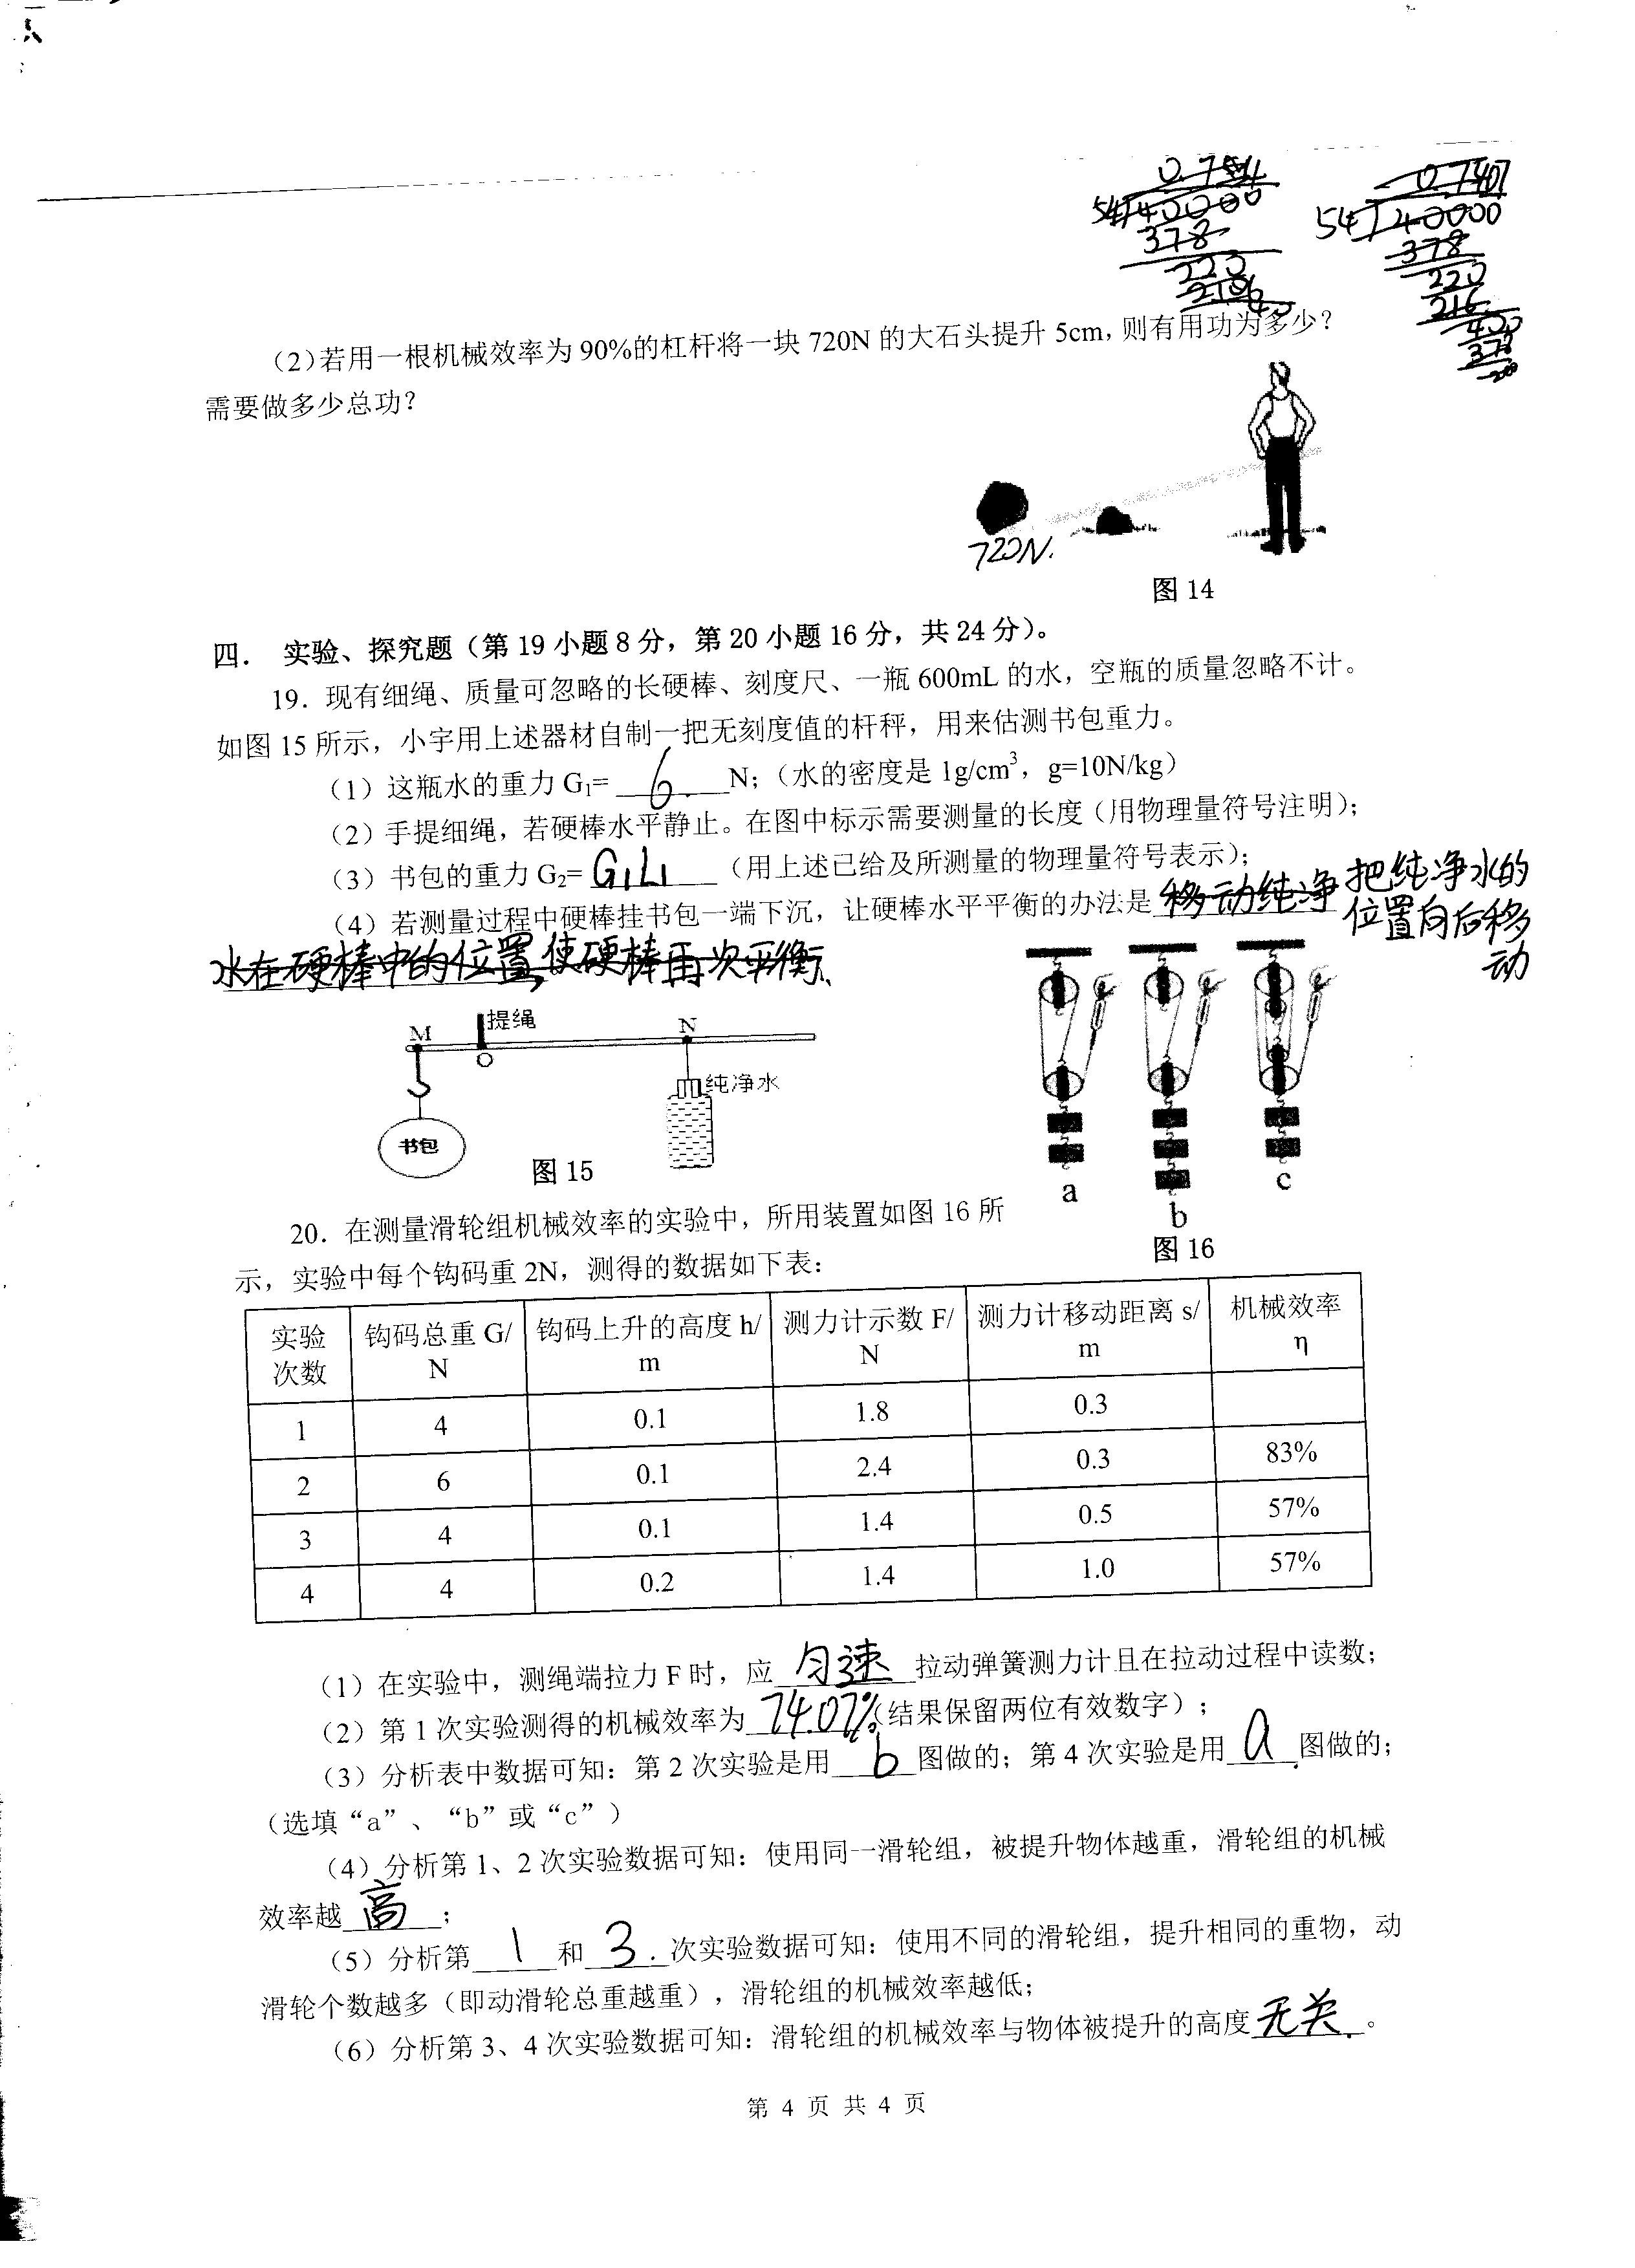 0.754
54 40000
378
220
0.7407
54 40000
378
220
216
400
378
(2)若用一根机械效率为 90%的杠杆将一块 720N 的大石头提升 5cm, 则有用功为多少?
需要做多少总功?
720N.
图 14
四. 实验、探究题（第 19 小题 8 分，第 20 小题 16 分，共 24 分）。
19. 现有细绳、质量可忽略的长硬棒、刻度尺、一瓶 600mL 的水，空瓶的质量忽略不计。
如图 15 所示，小宇用上述器材自制一把无刻度值的杆秤，用来估测书包重力。
（1）这瓶水的重力 G₁= 6. N;（水的密度是 1g/cm³，g=10N/kg）
（2）手提细绳，若硬棒水平静止。在图中标示需要测量的长度（用物理量符号注明）；
（3）书包的重力 G₂= G1L1 （用上述已给及所测量的物理量符号表示）；
（4）若测量过程中硬棒挂书包一端下沉，让硬棒水平平衡的办法是 移动纯净
水在硬棒中的位置，使硬棒再次平衡、
把纯净水的
位置向后移
动
M 提绳 O N
纯净水
书包
图 15
a b c
图 16
20. 在测量滑轮组机械效率的实验中，所用装置如图 16 所
示，实验中每个钩码重 2N，测得的数据如下表：
实验次数 钩码总重 G/N 钩码上升的高度 h/m 测力计示数 F/N 测力计移动距离 s/m 机械效率 η
1 4 0.1 1.8 0.3
2 6 0.1 2.4 0.3 83%
3 4 0.1 1.4 0.5 57%
4 4 0.2 1.4 1.0 57%
（1）在实验中，测绳端拉力 F 时，应 匀速 拉动弹簧测力计且在拉动过程中读数；
（2）第 1 次实验测得的机械效率为 74.07% （结果保留两位有效数字）；
（3）分析表中数据可知：第 2 次实验是用 b 图做的；第 4 次实验是用 a 图做的；
（选填“a”、“b”或“c”）
（4）分析第 1、2 次实验数据可知：使用同一滑轮组，被提升物体越重，滑轮组的机械
效率越 高 ；
（5）分析第 1 和 3. 次实验数据可知：使用不同的滑轮组，提升相同的重物，动
滑轮个数越多（即动滑轮总重越重），滑轮组的机械效率越低；
（6）分析第 3、4 次实验数据可知：滑轮组的机械效率与物体被提升的高度 无关. 。
第 4 页 共 4 页